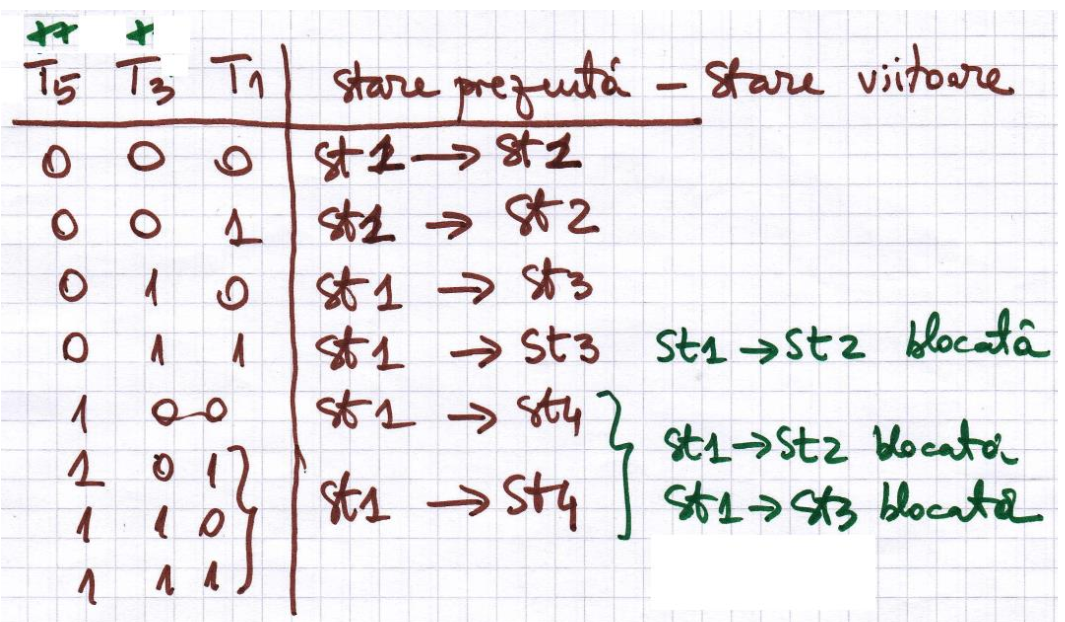 ++ +
T5 T3 T1 | stare prezentă – stare viitoare
0 0 0 | st1 → st1
0 0 1 | st1 → st2
0 1 0 | st1 → st3
0 1 1 | st1 → st3 st1 → st2 blocată
1 0-0 | st1 → st4
st1 → st2 blocată
1 0 1
1 1 0 | st1 → st4 st1 → st3 blocată
1 1 1